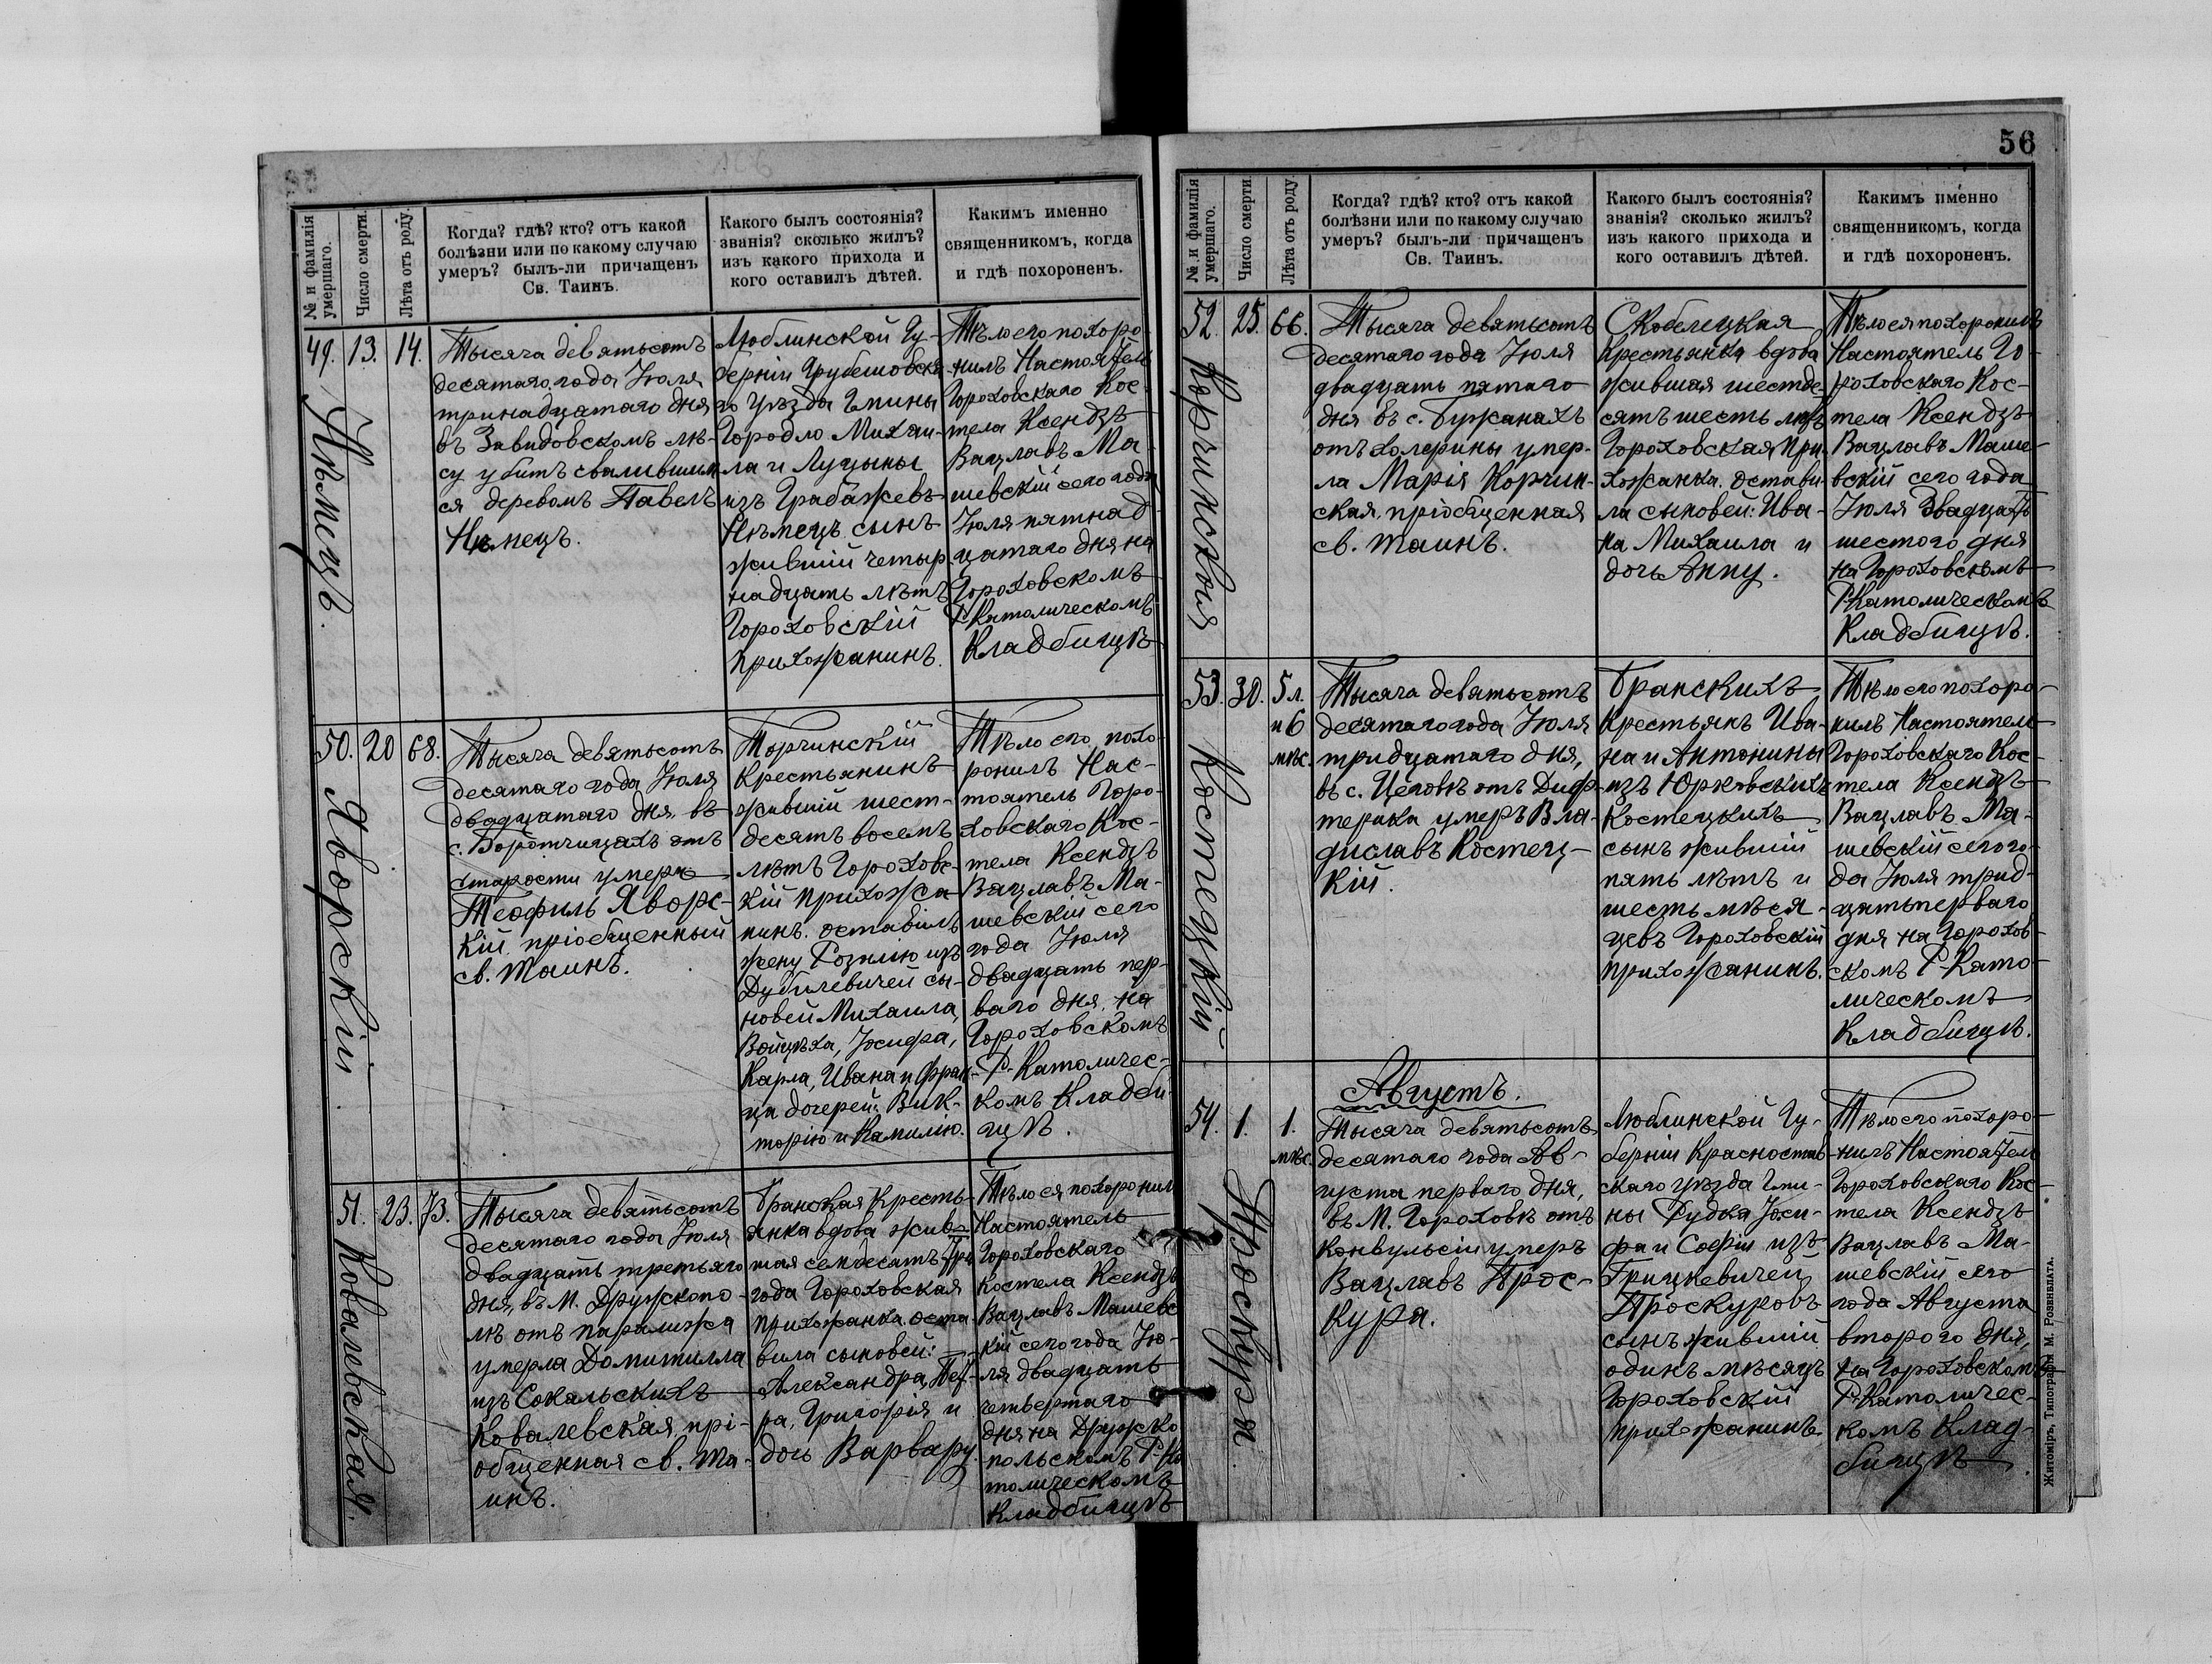 № и фамилія
умершаго.
Число смерти.
Лѣта отъ роду.
Когда? гдѣ? кто? отъ какой
болѣзни или по какому случаю
умеръ? былъ-ли причащенъ
Св. Таинъ.
Какого былъ состоянія?
званія? сколько жилъ?
изъ какого прихода и
кого оставилъ дѣтей.
Какимъ именно
священникомъ, когда
и гдѣ похороненъ.
49.
Нѣмецъ.
13.
14.
Тысяча девятьсотъ
десятаго года Іюля
тринадцатаго дня
въ Завидовскомъ лѣ-
су убитъ свалившим
ся деревомъ Павелъ
Нѣмецъ.
Люблинской Гу-
берніи Грубешовска
го уѣзда Гмины
Городло Михаи-
ла и Луцыны
изъ Грабажевъ
Нѣмецъ сынъ
жившій четыр
надцать лѣтъ
Гороховскій
прихожанинъ.
Тѣло его похоро-
нилъ Настоятель
Гороховскаго Кос-
тела Ксендзъ
Вацлавъ Ма-
шевскій сего года
Іюля пятнад
цатаго дня на
Гороховскомъ
Р.-Католическомъ
Кладбищѣ
50.
Яворскій
20
68.
Тысяча девятьсотъ
десятаго года Іюля
двадцатаго дня, въ
с. Боротчицахъ отъ
старости умеръ
Теофиль Яворс-
кій пріобщенный
св. Таинъ.
Торчинскій
крестьянинъ
жившій шест-
десятъ восемь
лѣтъ Гороховс-
кій прихожа-
нинъ. оставилъ
жену Розалію изъ
Дубилевичей сы-
новей Михаила,
Войцѣха, Іосифа,
Карла, Ивана и Фран-
ца дочерей: Вик-
торію и Камилію.
Тѣло его похо-
ронилъ Нас-
тоятель Горо-
ховскаго Кос-
тела Ксендзъ
Вацлавъ Ма-
шевскій сего
года Іюля
двадцать пер-
ваго дня на
Гороховскомъ
Р.-Католичес-
комъ Кладби
щѣ.
51.
Ковалевская.
23.
73.
Тысяча девятьсотъ
десятаго года Іюля
двадцать третьяго
дня, въ М. Дружкопо-
лѣ отъ паралижа
умерла Домитилла
изъ Сокальскихъ
Ковалевская, прі-
общенная св. Та-
инъ.
Бранская Кресть-
янка вдова жив-
шая семдесятъ три
года Гороховская
прихожанка. оста-
вила сыновей:
Александра, Пет-
ра, Григорія и
дочь Варвару.
Тѣло ея похоронил
Настоятель
Гороховскаго
Костела Ксендзъ
Вацлавъ Машевс
кій сего года Ію-
ля двадцать
четвертаго
дня на Дружко
польскомъ Р.-Ка
толическомъ
Кладбищѣ
56
№ и фамилія
умершаго.
Число смерти.
Лѣта отъ роду.
Когда? гдѣ? кто? отъ какой
болѣзни или по какому случаю
умеръ? былъ-ли причащенъ
Св. Таинъ.
Какого былъ состоянія?
званія? сколько жилъ?
изъ какого прихода и
кого оставилъ дѣтей.
Какимъ именно
священникомъ, когда
и гдѣ похороненъ.
52.
Корчинская
25.
66.
Тысяча девятьсотъ
десятаго года Іюля
двадцать пятаго
дня въ с. Бужанахъ
отъ холерины умер-
ла Марія Корчин-
ская, пріобщенная
св. Таинъ.
Скобелецкая
Крестьянка вдова
жившая шестде-
сятъ шесть лѣтъ
Гороховская при-
хожанка. остави-
ла сыновей: Ива-
на Михаила и
дочь Анну.
Тѣло ея похоронилъ
Настоятель Го-
роховскаго Кос-
тела Ксендзъ
Вацлавъ Маше-
вскій сего года
Іюля двадцать
шестого дня
на Гороховскомъ
Р.-Католическомъ
Кладбищѣ.
53.
Костецкій
30.
5 л.
и 6
мѣс.
Тысяча девятьсотъ
десятаго года Іюля
тридцатаго дня,
въ с. Цеговѣ отъ Диф-
терика умеръ Вла-
диславъ Костец-
кій.
Бранскихъ
Крестьянъ Ива-
на и Антонины
изъ Юрковскихъ
Костецкихъ
сынъ жившій
пять лѣтъ и
шесть мѣся-
цевъ Гороховскій
прихожанинъ.
Тѣло его похоро-
нилъ Настоятель
Гороховскаго Кос-
тела Ксендзъ
Вацлавъ Ма-
шевскій сего го-
да Іюля трид-
цатьперваго
дня на Горохов-
скомъ Р-Като-
лическомъ
Кладбищѣ.
Августъ.
54.
Проскура
1.
1.
мѣс.
Тысяча девятьсотъ
десятаго года Ав-
густа перваго дня,
въ М. Гороховѣ отъ
конвульсіи умеръ
Вацлавъ Прос-
кура.
Люблинской Гу-
берніи Красностав-
скаго уѣзда Гми-
ны Рудка Іоси-
фа и Софіи изъ
Грицкевичей
Проскуровъ
сынъ жившій
одинъ мѣсяцъ
Гороховскій
прихожанинъ.
Тѣло его похоро-
нилъ Настоятель
Гороховскаго Кос-
тела Ксендзъ
Вацлавъ Ма-
шевскій сего
года Августа
второго дня,
на Гороховскомъ
Р-Католичес-
комъ Клад-
бищѣ.
Житомiръ, Типографія М. Розенблата.